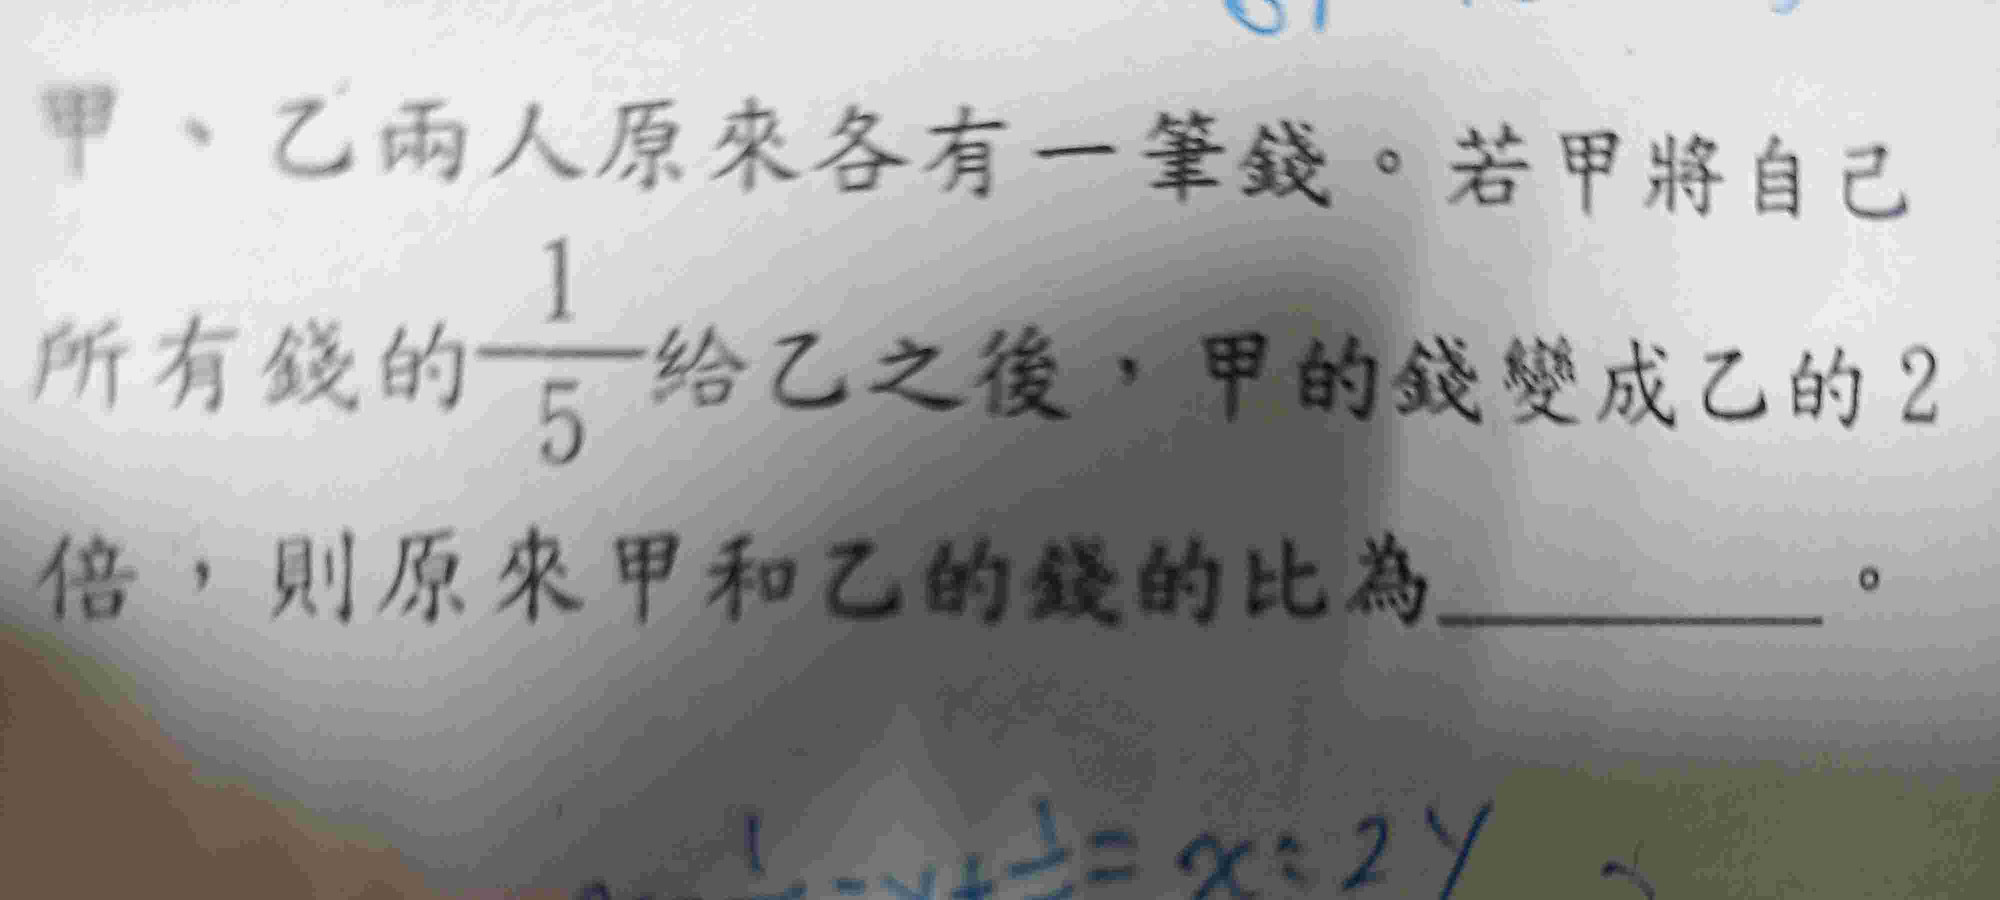 甲、乙兩人原來各有一筆錢。若甲將自己
所有錢的1/5給乙之後,甲的錢變成乙的2
倍,則原來甲和乙的錢的比為______。
= x:2y